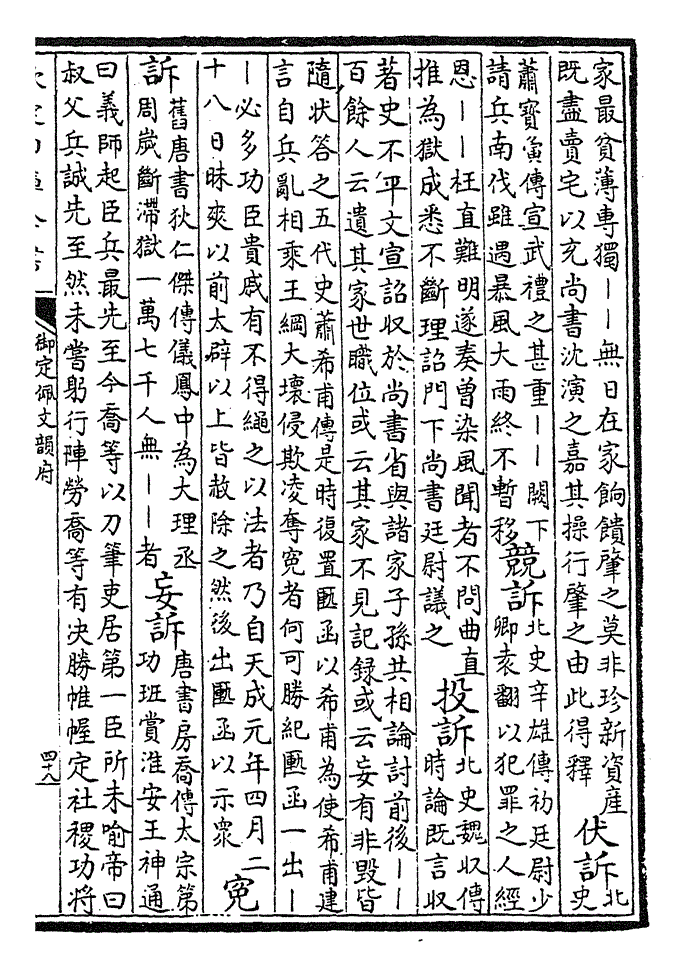 家最貧薄專獨——無日在家餉饋肇之莫非珍新資産
既盡賣宅以充尚書沈演之嘉其操行肇之由此得釋
伏訴
北
史
蕭寳夤傳宣武禮之甚重——闕下
請兵南伐雖遇暴風大雨終不暫移
競訴
北史辛雄傳初廷尉少
卿袁翻以犯罪之人經
恩——枉直難明遂奏曾染風聞者不問曲直
推為獄成悉不斷理詔門下尚書廷尉議之
投訴
北史魏収傳
時論既言収
著史不平文宣詔収於尚書省與諸家子孫共相論討前後——
百餘人云遺其家世職位或云其家不見記録或云妄有非毀皆
隨狀答之五代史蕭希甫傳是時復置匭函以希甫為使希甫建
言自兵亂相乘王綱大壞侵欺凌奪寃者何可勝紀匭函一出—
—必多功臣貴戚有不得繩之以法者乃自天成元年四月二
十八日昧爽以前太辟以上皆赦除之然後出匭函以示衆
寃
訴
舊唐書狄仁傑傳儀鳳中為大理丞
周嵗斷滯獄一萬七千人無——者
妄訴
唐書房喬傳太宗第
功班賞淮安王神通
曰義師起臣兵最先至今喬等以刀筆吏居第一臣所未喻帝曰
叔父兵誠先至然未嘗躬行陣勞喬等有决勝帷幄定社稷功將
御定佩文韻府
四十八